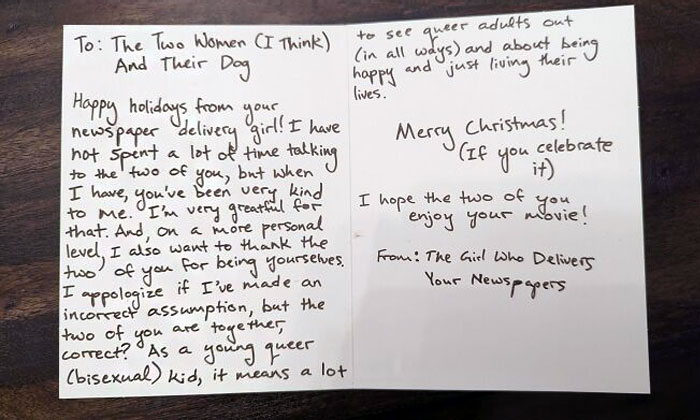 To: The Two Women (I Think)
And Their Dog
Happy holidays from your
newspaper delivery girl! I have
not spent a lot of time talking
to the two of you, but when
I have, you've been very kind
to me. I'm very greatful for
that. And, on a more personal
level, I also want to thank the
two of you for being yourselves.
I appologize if I've made an
incorrect assumption, but the
two of you are together,
correct? As a young queer
(bisexual) kid, it means a lot
to see queer adults out
(in all ways) and about being
happy and just living their
lives.
Merry Christmas!
(If you celebrate
it)
I hope the two of you
enjoy your movie!
From: The Girl Who Delivers
Your Newspapers